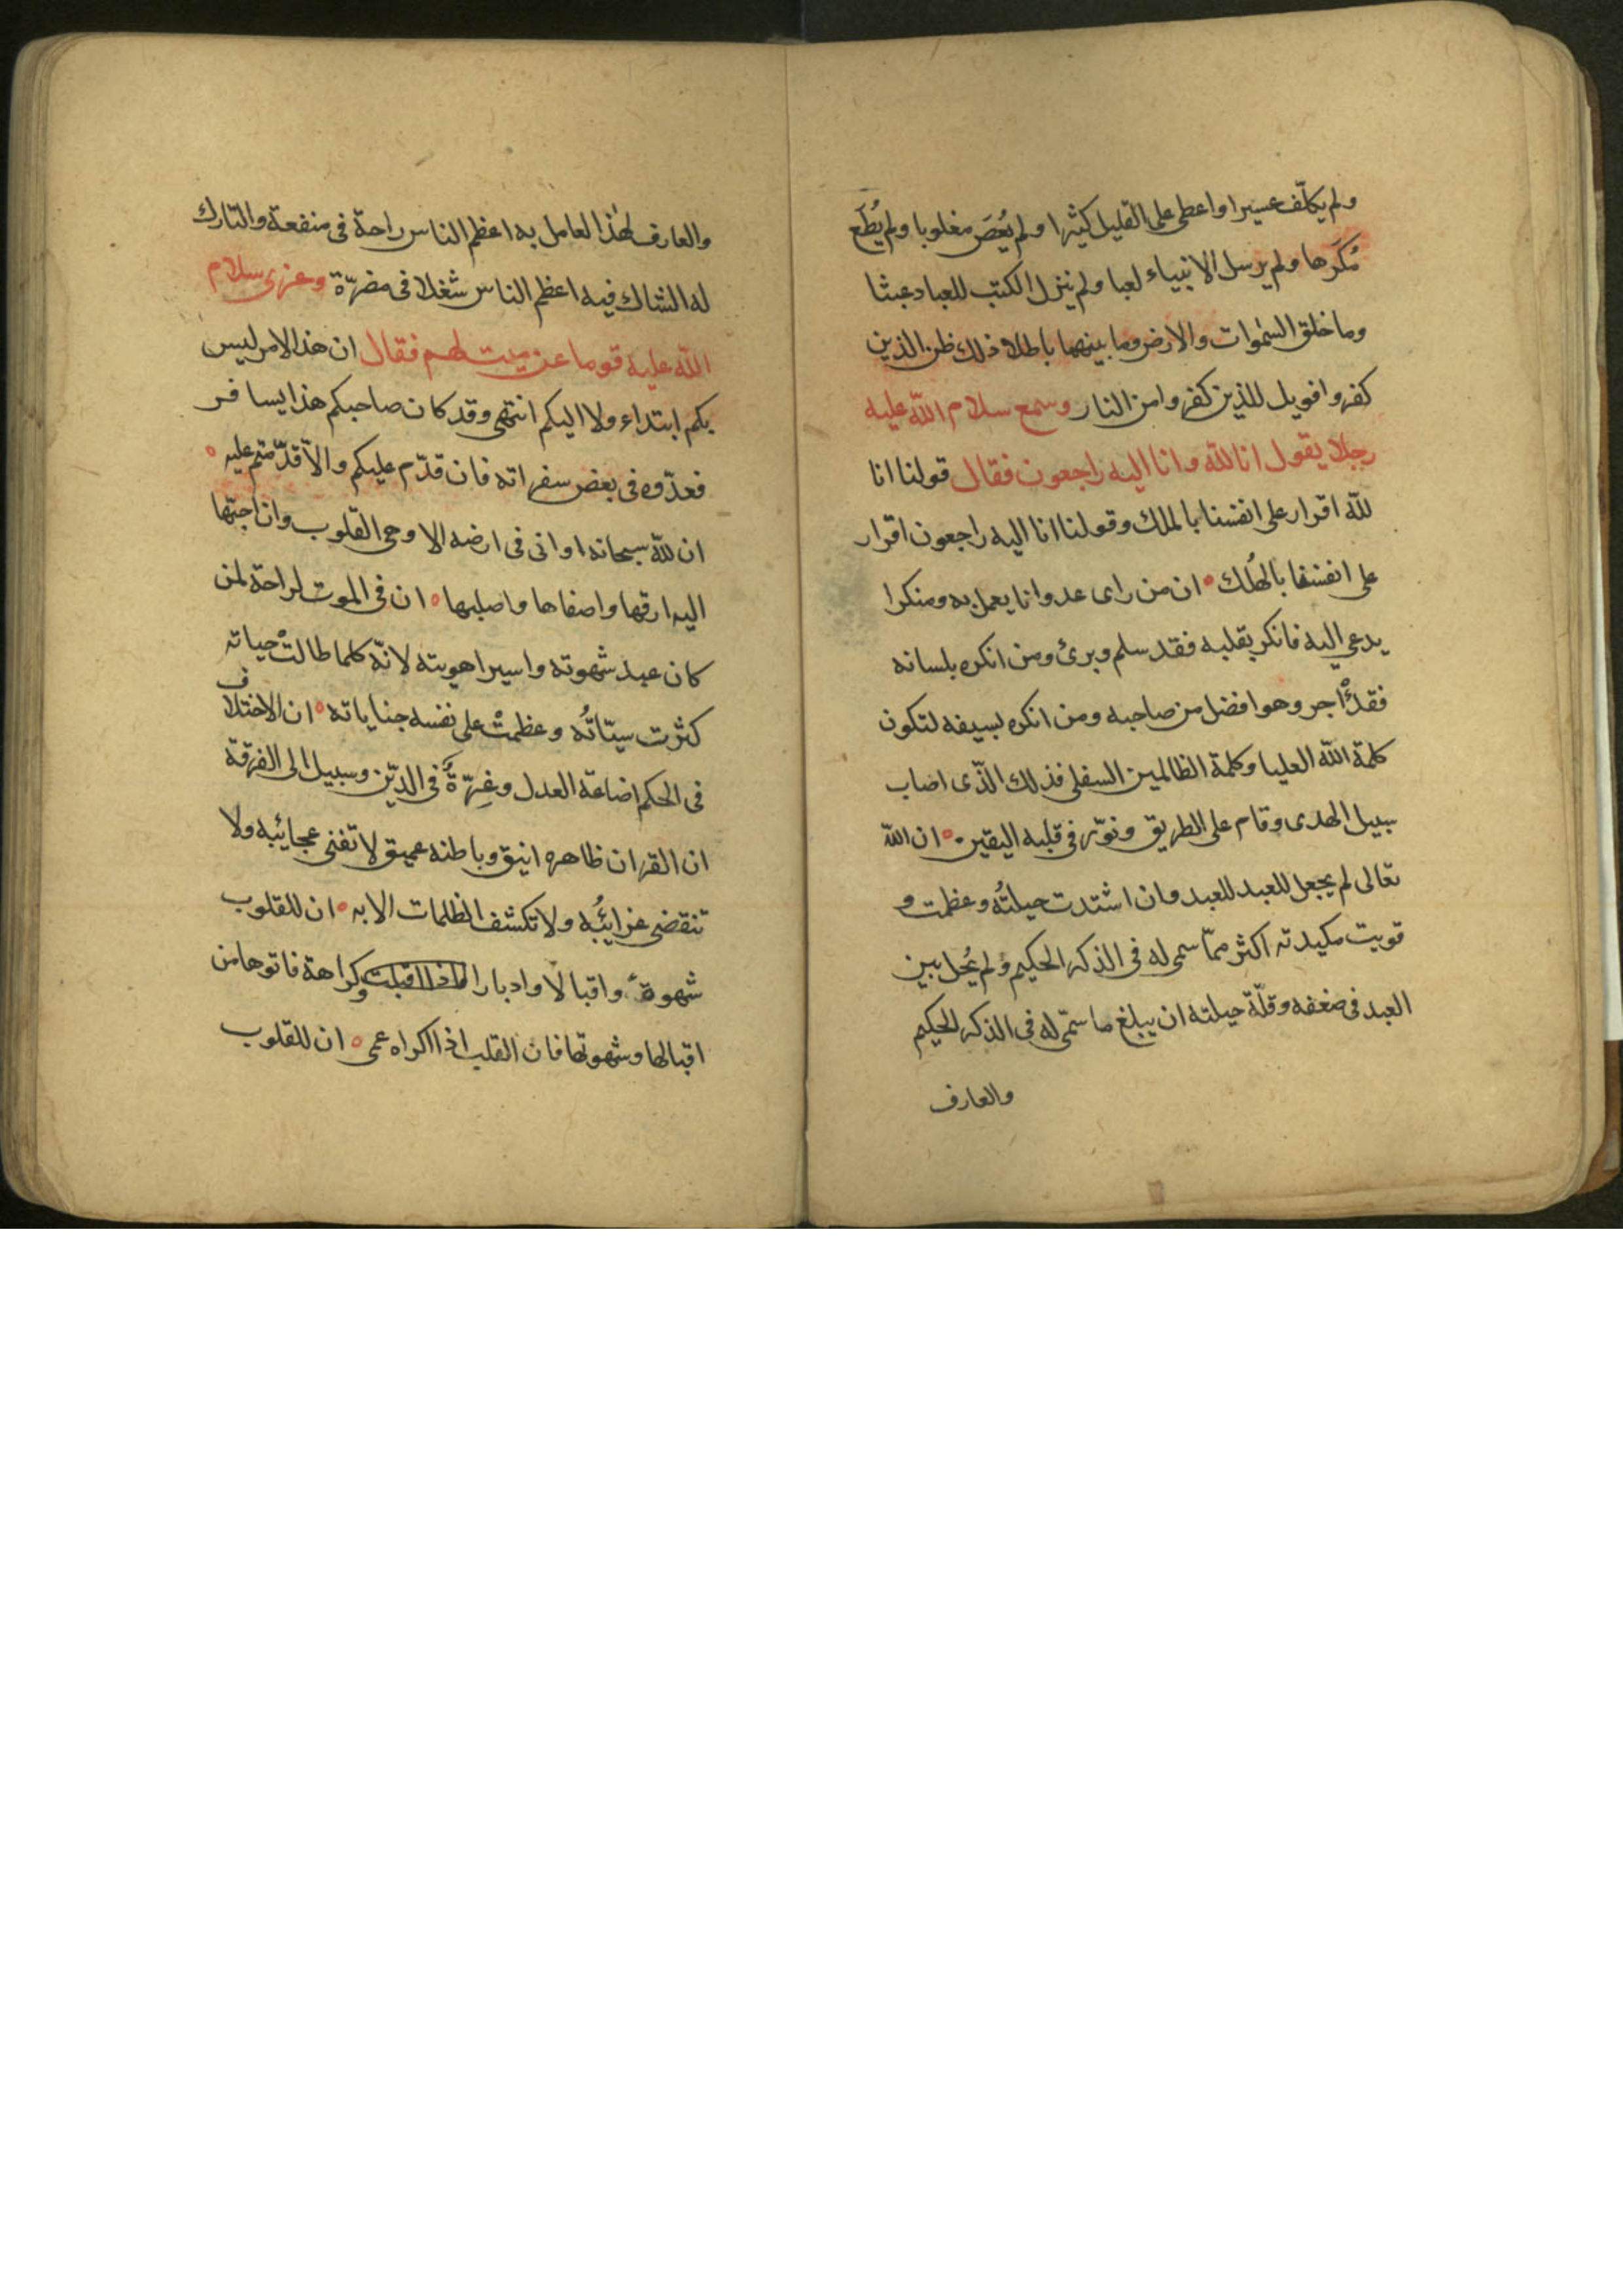 ولم يكلّف عسيرا واعطى على القليل كثيرا ولم يُعْصَ مغلوبا ولم يُطَع
مُكرَها ولم يرسل الانبياء لعبا ولم ينزل الكتب للعباد عبثا
وما خلق السمٰوات والارض وما بينهما باطلا ذلك ظن الذين
كفروا فويل للذين كفروا من النار وسمع سلام اللّه عليه
رجلا يقول انا للّه وانا اليه راجعون فقال قولنا انا
للّه اقرار على انفسنا بالملك وقولنا انا اليه راجعون اقرار
على انفسنا بالهُلك ان من راى عدوانا يعمل به ومنكرا
يدعى اليه فانكر بقلبه فقد سلم وبرئ ومن انكره بلسانه
فقد اجر وهو افضل من صاحبه ومن انكره بسيفه لتكون
كلمة اللّه العليا وكلمة الظالمين السفلى فذلك الذّى اصاب
سبيل الهدى وقام على الطريق ونوّر فى قلبه اليقين ان اللّه
تعالى لم يجعل للعبد للعبد وان اشتدت حيلتُه وعظمت و
قويت مكيدته اكثر ممّا سمى له فى الذكر الحكيم ولم يُحل بين
العبد فى ضعفه وقلّة حيلته ان يبلغ ما سمّى له فى الذكر الحكيم
والعارف
والعارف لهٰذا العامل به اعظم الناس راحة فى منفعة والتارك
له الشاك فيه اعظم الناس شغلا فى مضرّة وعزى سلام
اللّه عليه قوما عن ميت لهم فقال ان هذا الامر ليس
بكم ابتداء ولا اليكم انتهى وقد كان صاحبكم هذا يسافر
فعدّوه فى بعض سفراته فان قدّم عليكم والاّ قدّمتم عليه
ان للّه سبحانه اوانى فى ارضه الا وهى القلوب وان احبّها
اليه ارقها واصفاها واصلبها ان فى الموت لراحة لمن
كان عبد شهوته واسير اهويته لانّه كلما طالتْ حياته
كثرت سيّاتُه وعظمتْ على نفسه جناياته ان الاختلاف
فى الحكم اضاعة العدل وغِرّةٌ فى الدّين وسبيل الى الفرقة
ان القران ظاهره انيق وباطنه عميق لا تفنى عجائبه ولا
تنقضى غرائبُه ولا تكشف الظلمات الا به ان للقلوب
شهوةً واقبالا وادبارا فاذا اقبلت وكراهة فاتوها من
اقبالها وشهوتها فان القلب اذا اكراه عمى ان للقلوب